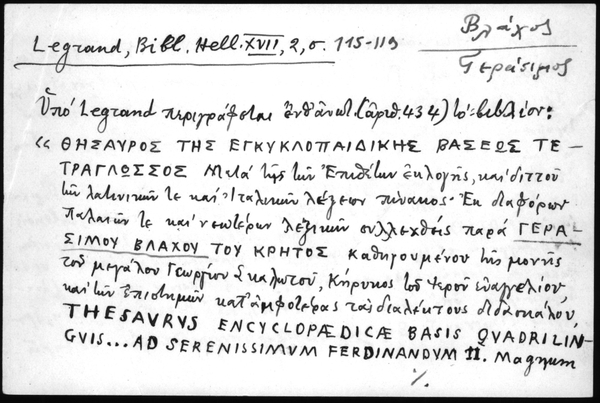 Legrand, Bibl. Hell. XVII, 2, σ. 115-119
Βλάχος
Γεράσιμος
Ὑπό Legrand περιγράφεται ἐνθἀνωτ. (ἀριθ. 434) τό βιβλίον:
« ΘΗΣΑΥΡΟΣ ΤΗΣ ΕΓΚΥΚΛΟΠΑΙΔΙΚΗΣ ΒΑΣΕΩΣ ΤΕ-
ΤΡΑΓΛΩΣΣΟΣ Μετά τῆς τῶν Ἐπιθέτων ἐκλογῆς, καί διττοῦ
τῶν λατινικῶν τε καί Ἰταλικῶν λέξεων πίνακος. Ἐκ διαφόρων
παλαιῶν τε καί νεωτέρων λεξικῶν συλλεχθείς παρά ΓΕΡΑ-
ΣΙΜΟΥ ΒΛΑΧΟΥ ΤΟΥ ΚΡΗΤΟΣ καθηγουμένου τῆς μονῆς
τοῦ μεγάλου Γεωργίου Σκαλωτοῦ, Κήρυκος τοῦ Ἱεροῦ εὐαγγελίου,
καί τῶν Ἐπιστημῶν κατ' ἀμφοτέρας τάς διαλέκτους διδασκάλου,
THESAVRVS ENCYCLOPÆDICÆ BASIS QVADRILIN-
GVIS... AD SERENISSIMVM FERDINANDVM II. Magnum
./.